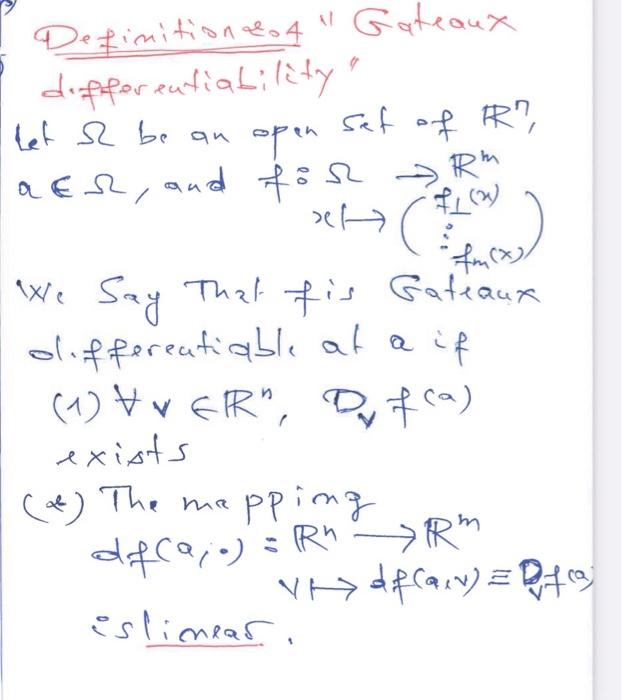 Definition 2.4 "Gateaux
differentiability"
Let Ω be an open set of ℝⁿ,
a ∈ Ω, and f : Ω → ℝᵐ
x ↦ ( f₁(x) ⋮ fₘ(x) )
We Say That f is Gateaux
differentiable at a if
(1) ∀ v ∈ ℝⁿ, Dᵥf(a)
exists
(2) The mapping
df(a,·) : ℝⁿ → ℝᵐ
v ↦ df(a,v) ≡ Dᵥf(a)
is linear.